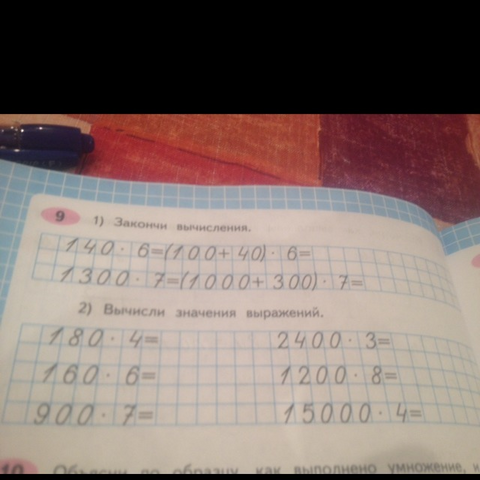 9 1) Закончи вычисления.
140 · 6=(100+40) · 6=
1300 · 7=(1000+300) · 7=
2) Вычисли значения выражений.
180 · 4= 2400 · 3=
160 · 6= 1200 · 8=
900 · 7= 15000 · 4=
10 Объясни по образцу, как выполнено умножение, и